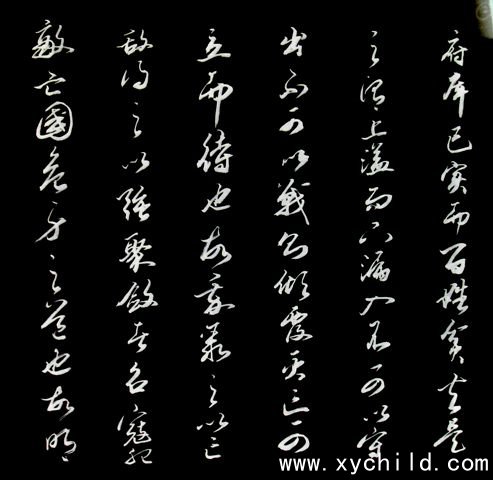 府庫已實而百姓貧夫是
之謂上溢而下漏入不可以守
出不可以戰則傾覆滅亡可
立而待也故我聚之以亡
敵得之以強聚斂者召寇肥
敵亡國危身之道也故明
www.xychild.com